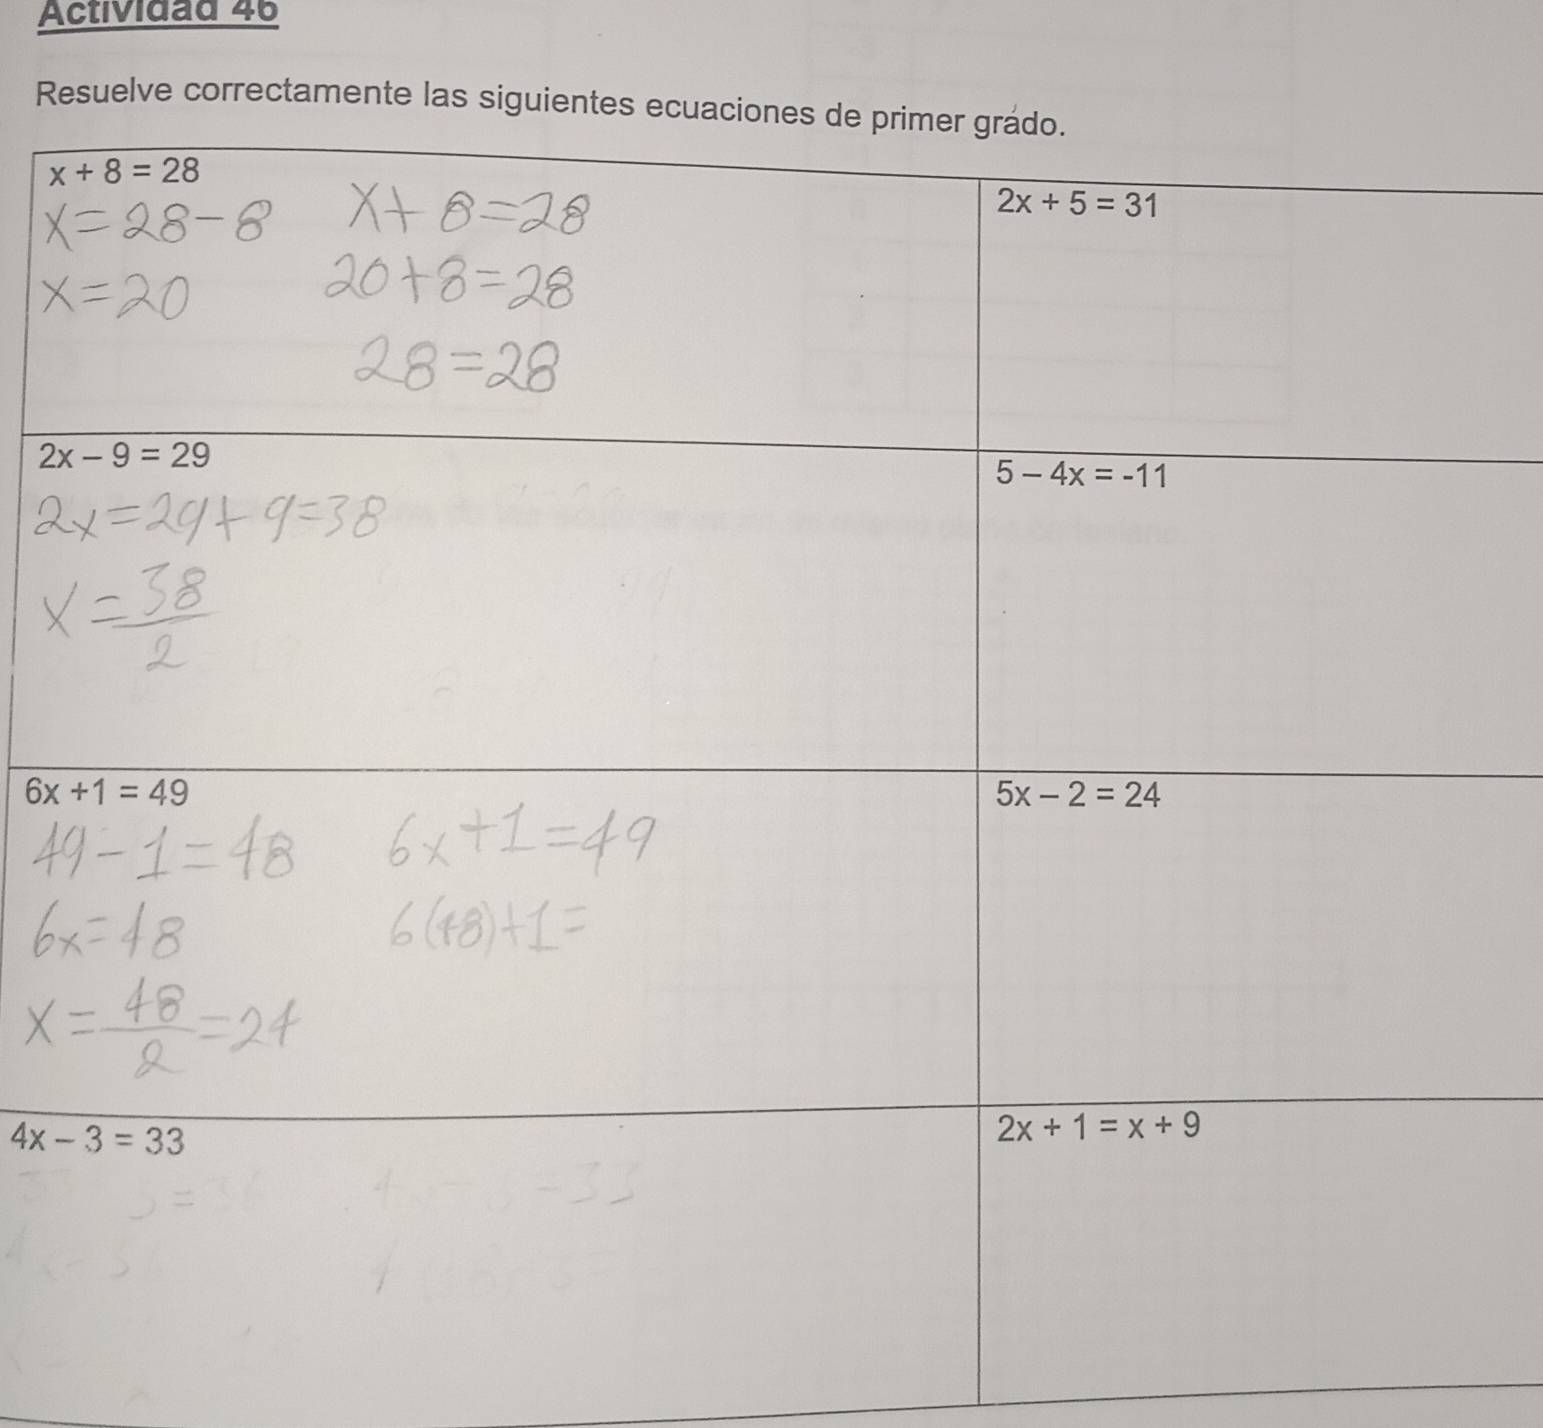 Actividad 46
Resuelve correctamente las siguientes ecuaciones de primer grado.
x + 8 = 28
x = 28 - 8
x = 20
x + 8 = 28
20 + 8 = 28
28 = 28
2x + 5 = 31
2x – 9 = 29
2x = 29 + 9 = 38
x = 38/2
5 – 4x = -11
6x +1 = 49
49 - 1 = 48
6x = 48
x = 48/2 = 24
6x + 1 = 49
6(48) + 1 =
5x – 2 = 24
4x – 3 = 33
2x + 1 = x + 9